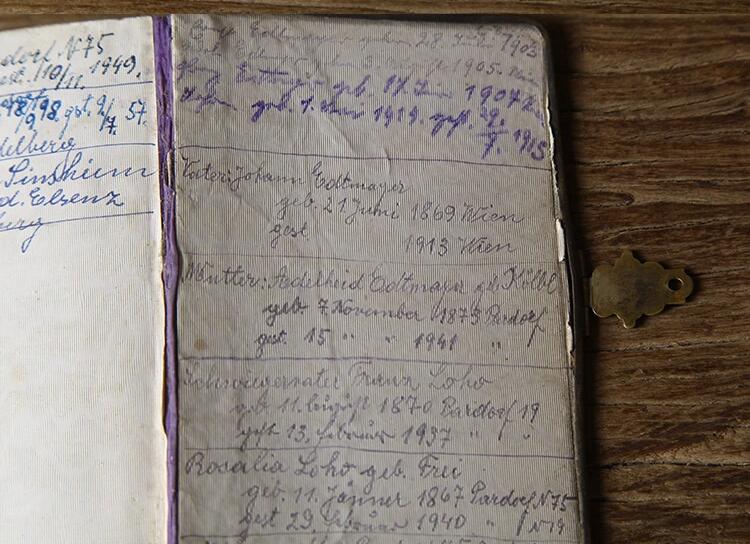 dorf N75
gest. 10/11. 1949.
1898. gst. 9/7. 57.
delberg
Sinsheim
d. Elsenz
burg
geb. 28. Juni 1903
1905.
geb. 17. Juni 1907
geb. 1. Juni 1914. gest. 1915
Vater: Johann Edtmayer
geb. 21 Juni 1869 Wien
gest 1913 Wien
Mutter: Adelheid Edtmayer geb. Kölbl
geb. 7 November 1873 Pardorf
gest. 15 " " 1941 "
Schwiegervater Franz Loho
geb. 11. August 1870 Pardorf 19
gest 13. Februar 1937 " "
Rosalia Loho geb. Frei
geb. 11. Jänner 1867 Pardorf N75
gest 29. Februar 1940 " N19